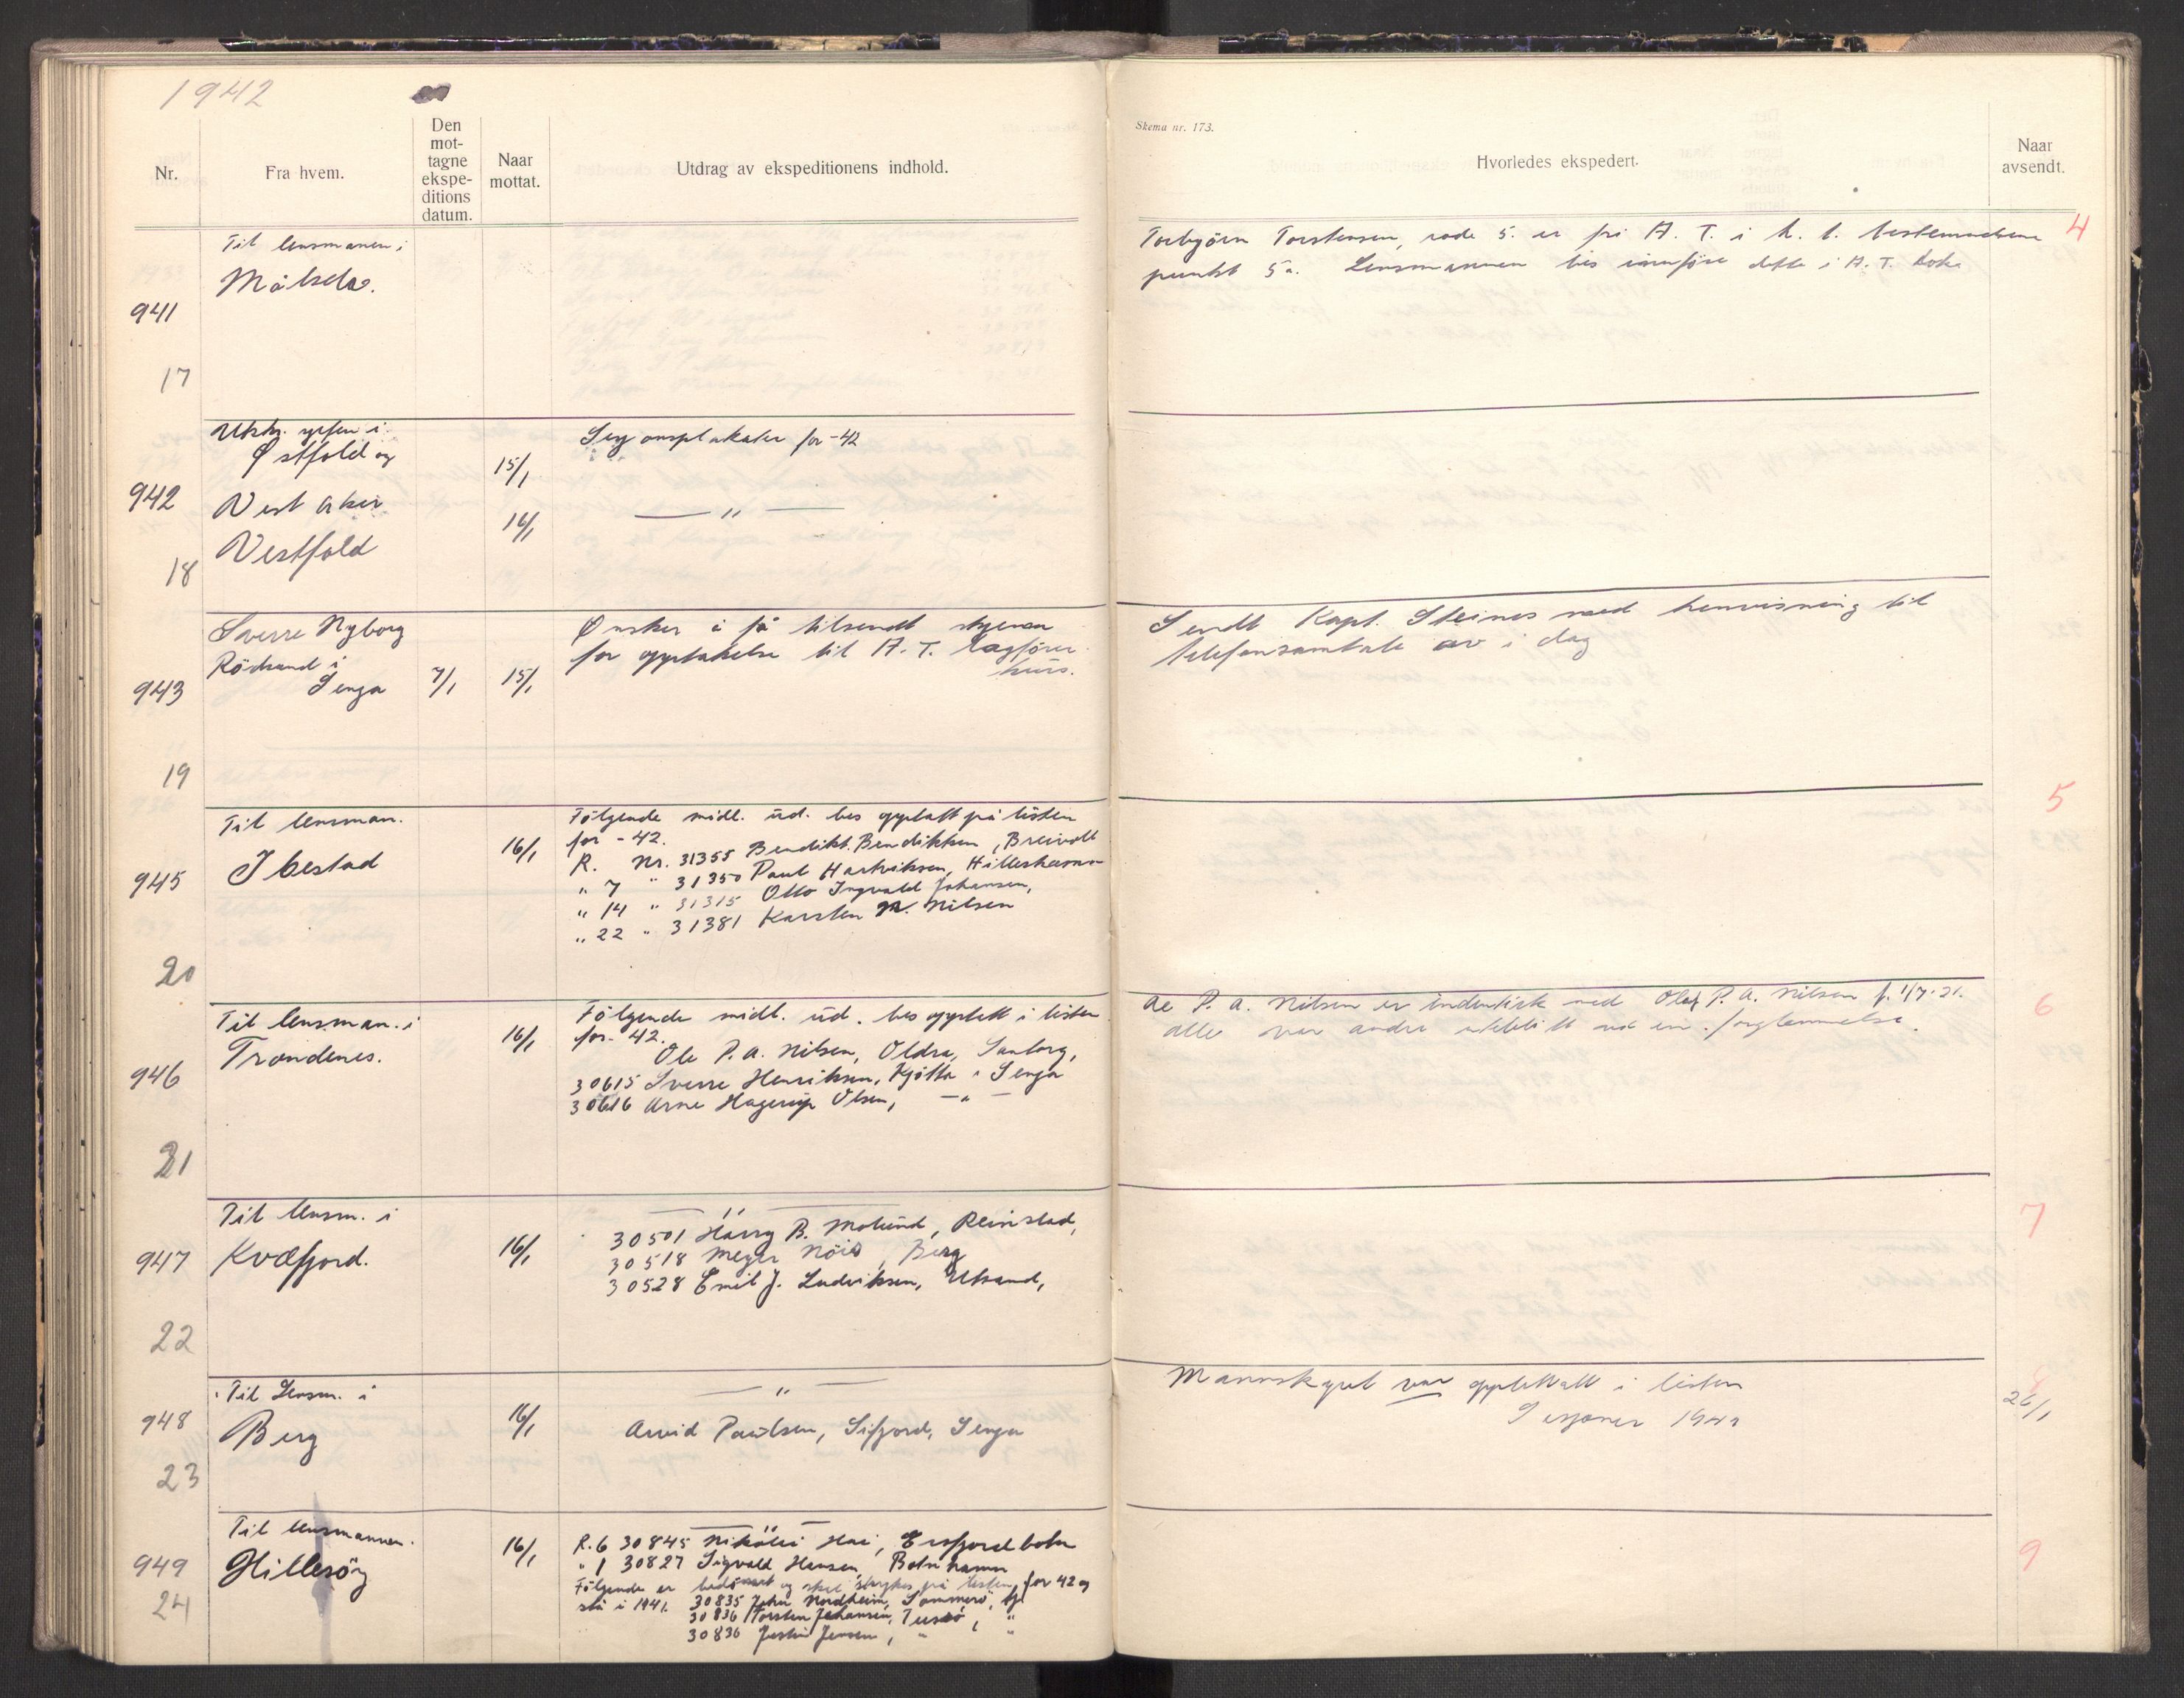 1942
Nr.
Fra hvem.
Den mot-
tagne
ekspe-
ditions
datum.
Naar
mottat.
Utdrag av ekspeditionens indhold.
Skema nr. 173.
Hvorledes ekspedert.
Naar
avsendt.
941
17
Til lensmannen i
Målselv.
Torbjörn Torstensen, rode 5. er fri A. T. i h. t. bestemmelsene
punkt 5a. Lensmannen bes innföre dette i A. T. boka
4
942
18
Utskr. sjefen i
Østfold og
Vest Aker
Vestfold
15/1
16/1
Sesjonsplakater for -42
— " —
943
19
Sverre Nyborg
Rödsand i
Senja
7/1
15/1
Ønsker å få tilsendt skjema
for opptakelse til A. T. lagförer
kurs.
Sendt Kapt. Steines med henvisning til
telefonsamtale av i dag
945
20
Til lensman.
Ibestad
16/1
Fölgende midl. ud. bes opptatt på listen
for -42.
R. Nr. 31355 Bendikt. Bendiktsen, Breivoll
" 7 " 31350 Paul Hartviksen, Hilleshamn
" 14 " 31315 Otto Ingvald Johansen,
" 22 " 31381 Karsten M. Nilsen
5
946
21
Til lensman. i
Trondenes.
16/1
Fölgende midl. ud. bes opptatt i listen
for -42.
Ole P. A. Nilsen, Oldra, Sanborg,
30615 Sverre Henriksen, Kjötta i Senja
30616 Arne Hagerup Olsen, — " —
Ae P. A. Nilsen er indentisk med Olaf P. A. Nilsen f. 1/7-21.
alle var andre uteblitt ved en forglemmelse.
6
947
22
Til lensm. i
Kvæfjord.
16/1
— " —
30501 Harry B. Molund, Reinstad,
30518 Meyer Nöis, Berg
30528 Emil J. Ludviksen, Utsand,
7
948
23
Til Lensm. i
Berg
16/1
— " —
Arvid Paulsen, Sifjord, Senja
Mannskapet var opptatt i listen
Sesjoner 1942
26/1
949
24
Til lensmannen.
Hillesöy
16/1
— " —
R. 6 30845 Nikolai Hai, Ersfjordbotn
" 1 30827 Sigvald Hansen, Botnhamn
Fölgende er bedömt og skal strykes på listen for 42 og
stå i 1941. 30835 John Nordheim, Sommerö,
30836 Torsten Johansen, Tussö, "
30836 Justin Jensen, " "
9